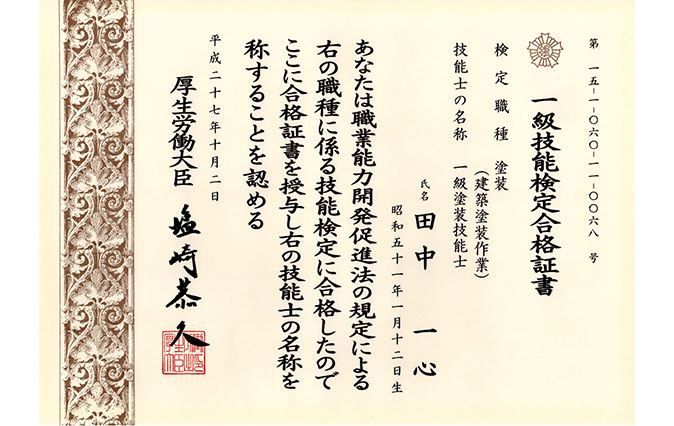 第 一五-一-〇六〇-一一-〇〇六八 号
一級技能検定合格証書
検定職種 塗装
(建築塗装作業)
技能士の名称 一級塗装技能士
氏名 田中 一心
昭和五十一年一月十二日生
あなたは職業能力開発促進法の規定による
右の職種に係る技能検定に合格したので
ここに合格証書を授与し右の技能士の名称を
称することを認める
平成二十七年十月二日
厚生労働大臣 塩崎恭久